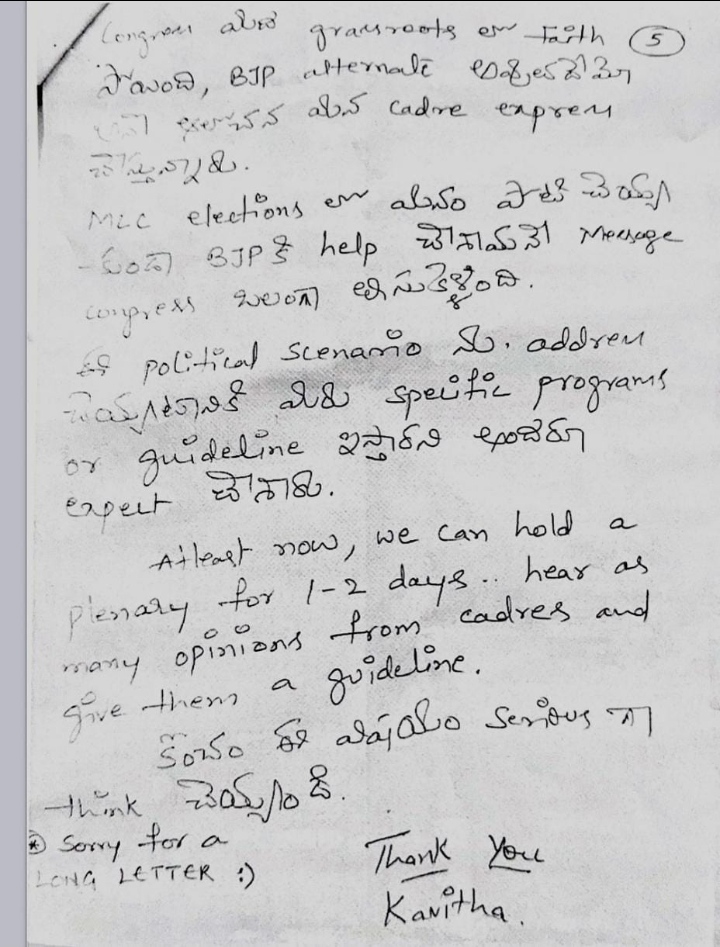 Congress మీద grassroots లో Faith (5)
పోయింది, BJP alternate అవ్వబోతుందేమో
అనే ఆలోచన మన cadre express
చేస్తున్నారు.
MLC elections లో మనం పోటీ చెయ్య
-కుండా BJPకి help చేశామనే Message
congress బలంగా తీసుకెళ్ళింది.
ఈ political scenario ను. address
చెయ్యటానికి మీరు specific programs
or guideline ఇస్తారని అందరూ
expect చేశారు.
Atleast now, we can hold a
plenary for 1-2 days.. hear as
many opinions from cadres and
give them a guideline.
కొంచం ఈ విషయం serious గా
think చెయ్యండి.
* Sorry for a
LONG LETTER :)
Thank You
Kavitha.